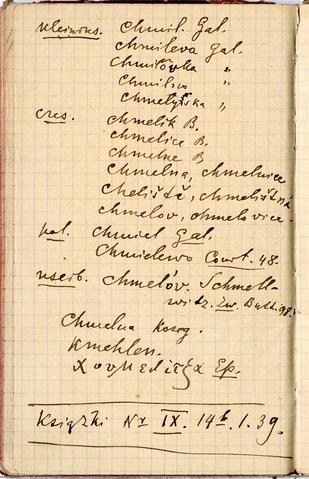 kleinrus. Chmil. Gal.
Chmileva Gal.
Chmilovka "
Chmilno "
Chmelyska "
čes. Chmelik B.
Chmelice B.
Chmelne B
Chmelna, Chmelnice
Chelištè, Chmelištná
Chmelov, Chmelovice.
pol. Chmiel Gal.
Chmielewo Court. 48.
nserb. Chmelov. Schmell-
witz. Zw. Butt. 98.
Chmelna Kosog.
Kmehlen.
Χουμελίτζα Ep.
Książki Nr IX. 14 t. 1. 39.